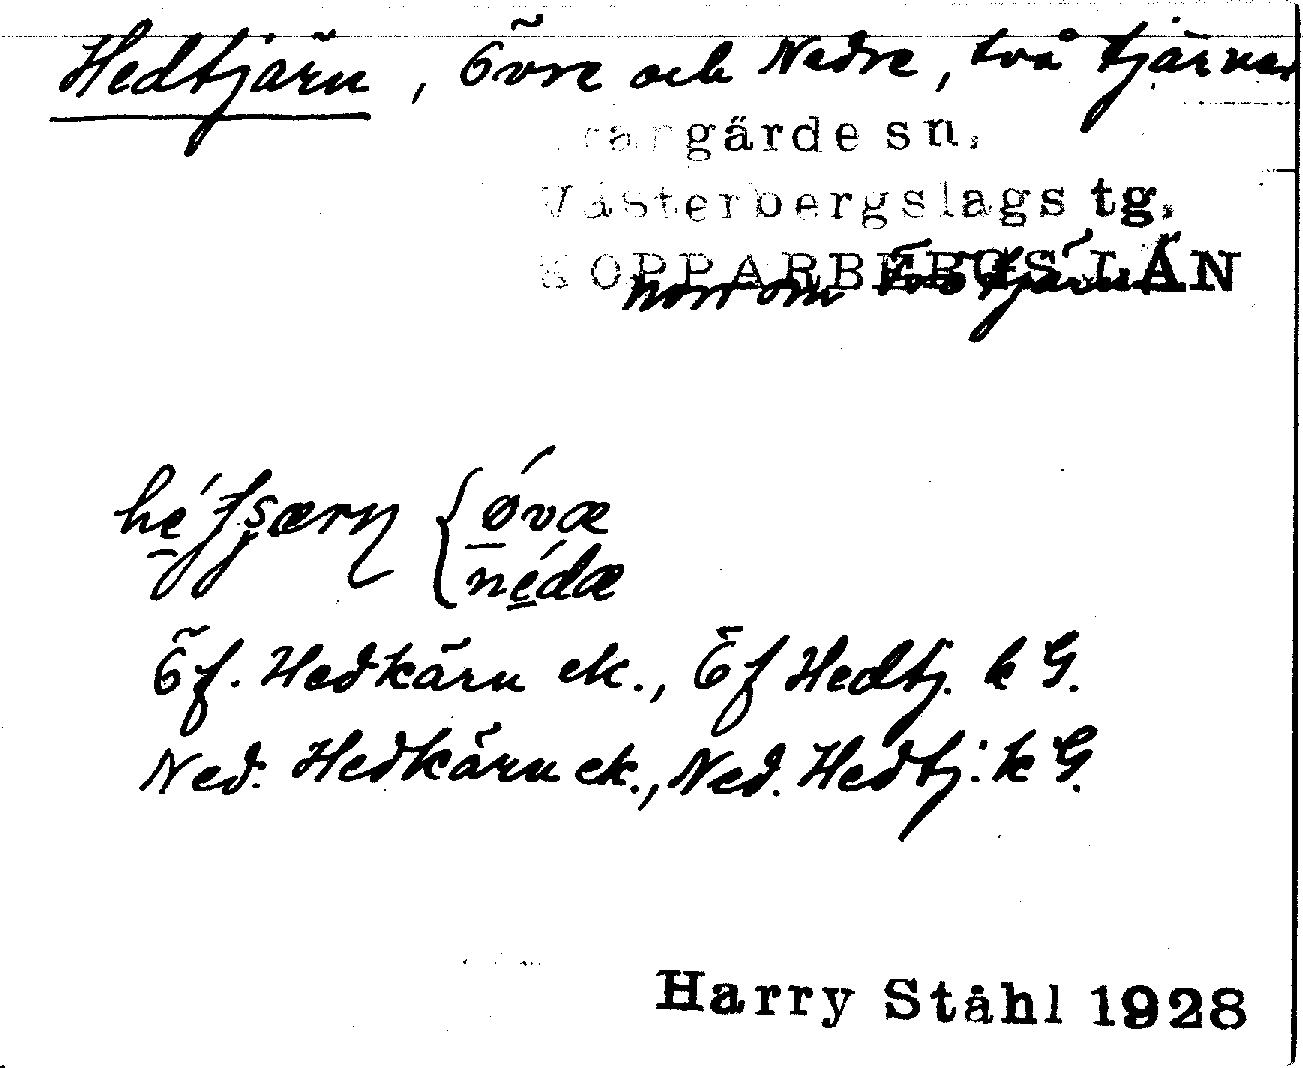 Hedtjärn, Övre och Nedre, två tjärnar
gärde sn.
Västerbergslags tg.
KOPPARBERGS LÄN
norr om tjärn
{ óvæ
nédæ
Öf. Hedkärn ek., Öf Hedtj. k G.
Ned. Hedkärn ek., Ned. Hedtj. k G.
Harry Ståhl 1928